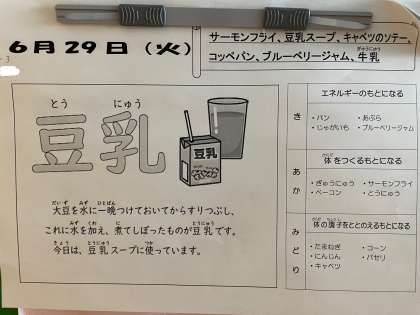 6月29日（火）
サーモンフライ、豆乳スープ、キャベツのソテー、
コッペパン、ブルーベリージャム、牛乳
ぎゅうにゅう
とう にゅう
豆乳
豆乳
だいず みず ひとばん
大豆を水に一晩つけておいてからすりつぶし、
みず くわ に とうにゅう
これに水を加え、煮てしぼったものが豆乳です。
きょう とうにゅう つか
今日は、豆乳スープに使っています。
エネルギーのもとになる
き
・パン ・あぶら
・じゃがいも ・ブルーベリージャム
体をつくるもとになる
あか
・ぎゅうにゅう ・サーモンフライ
・ベーコン ・とうにゅう
体の調子をととのえるもとになる
みどり
・たまねぎ ・コーン
・にんじん ・パセリ
・キャベツ